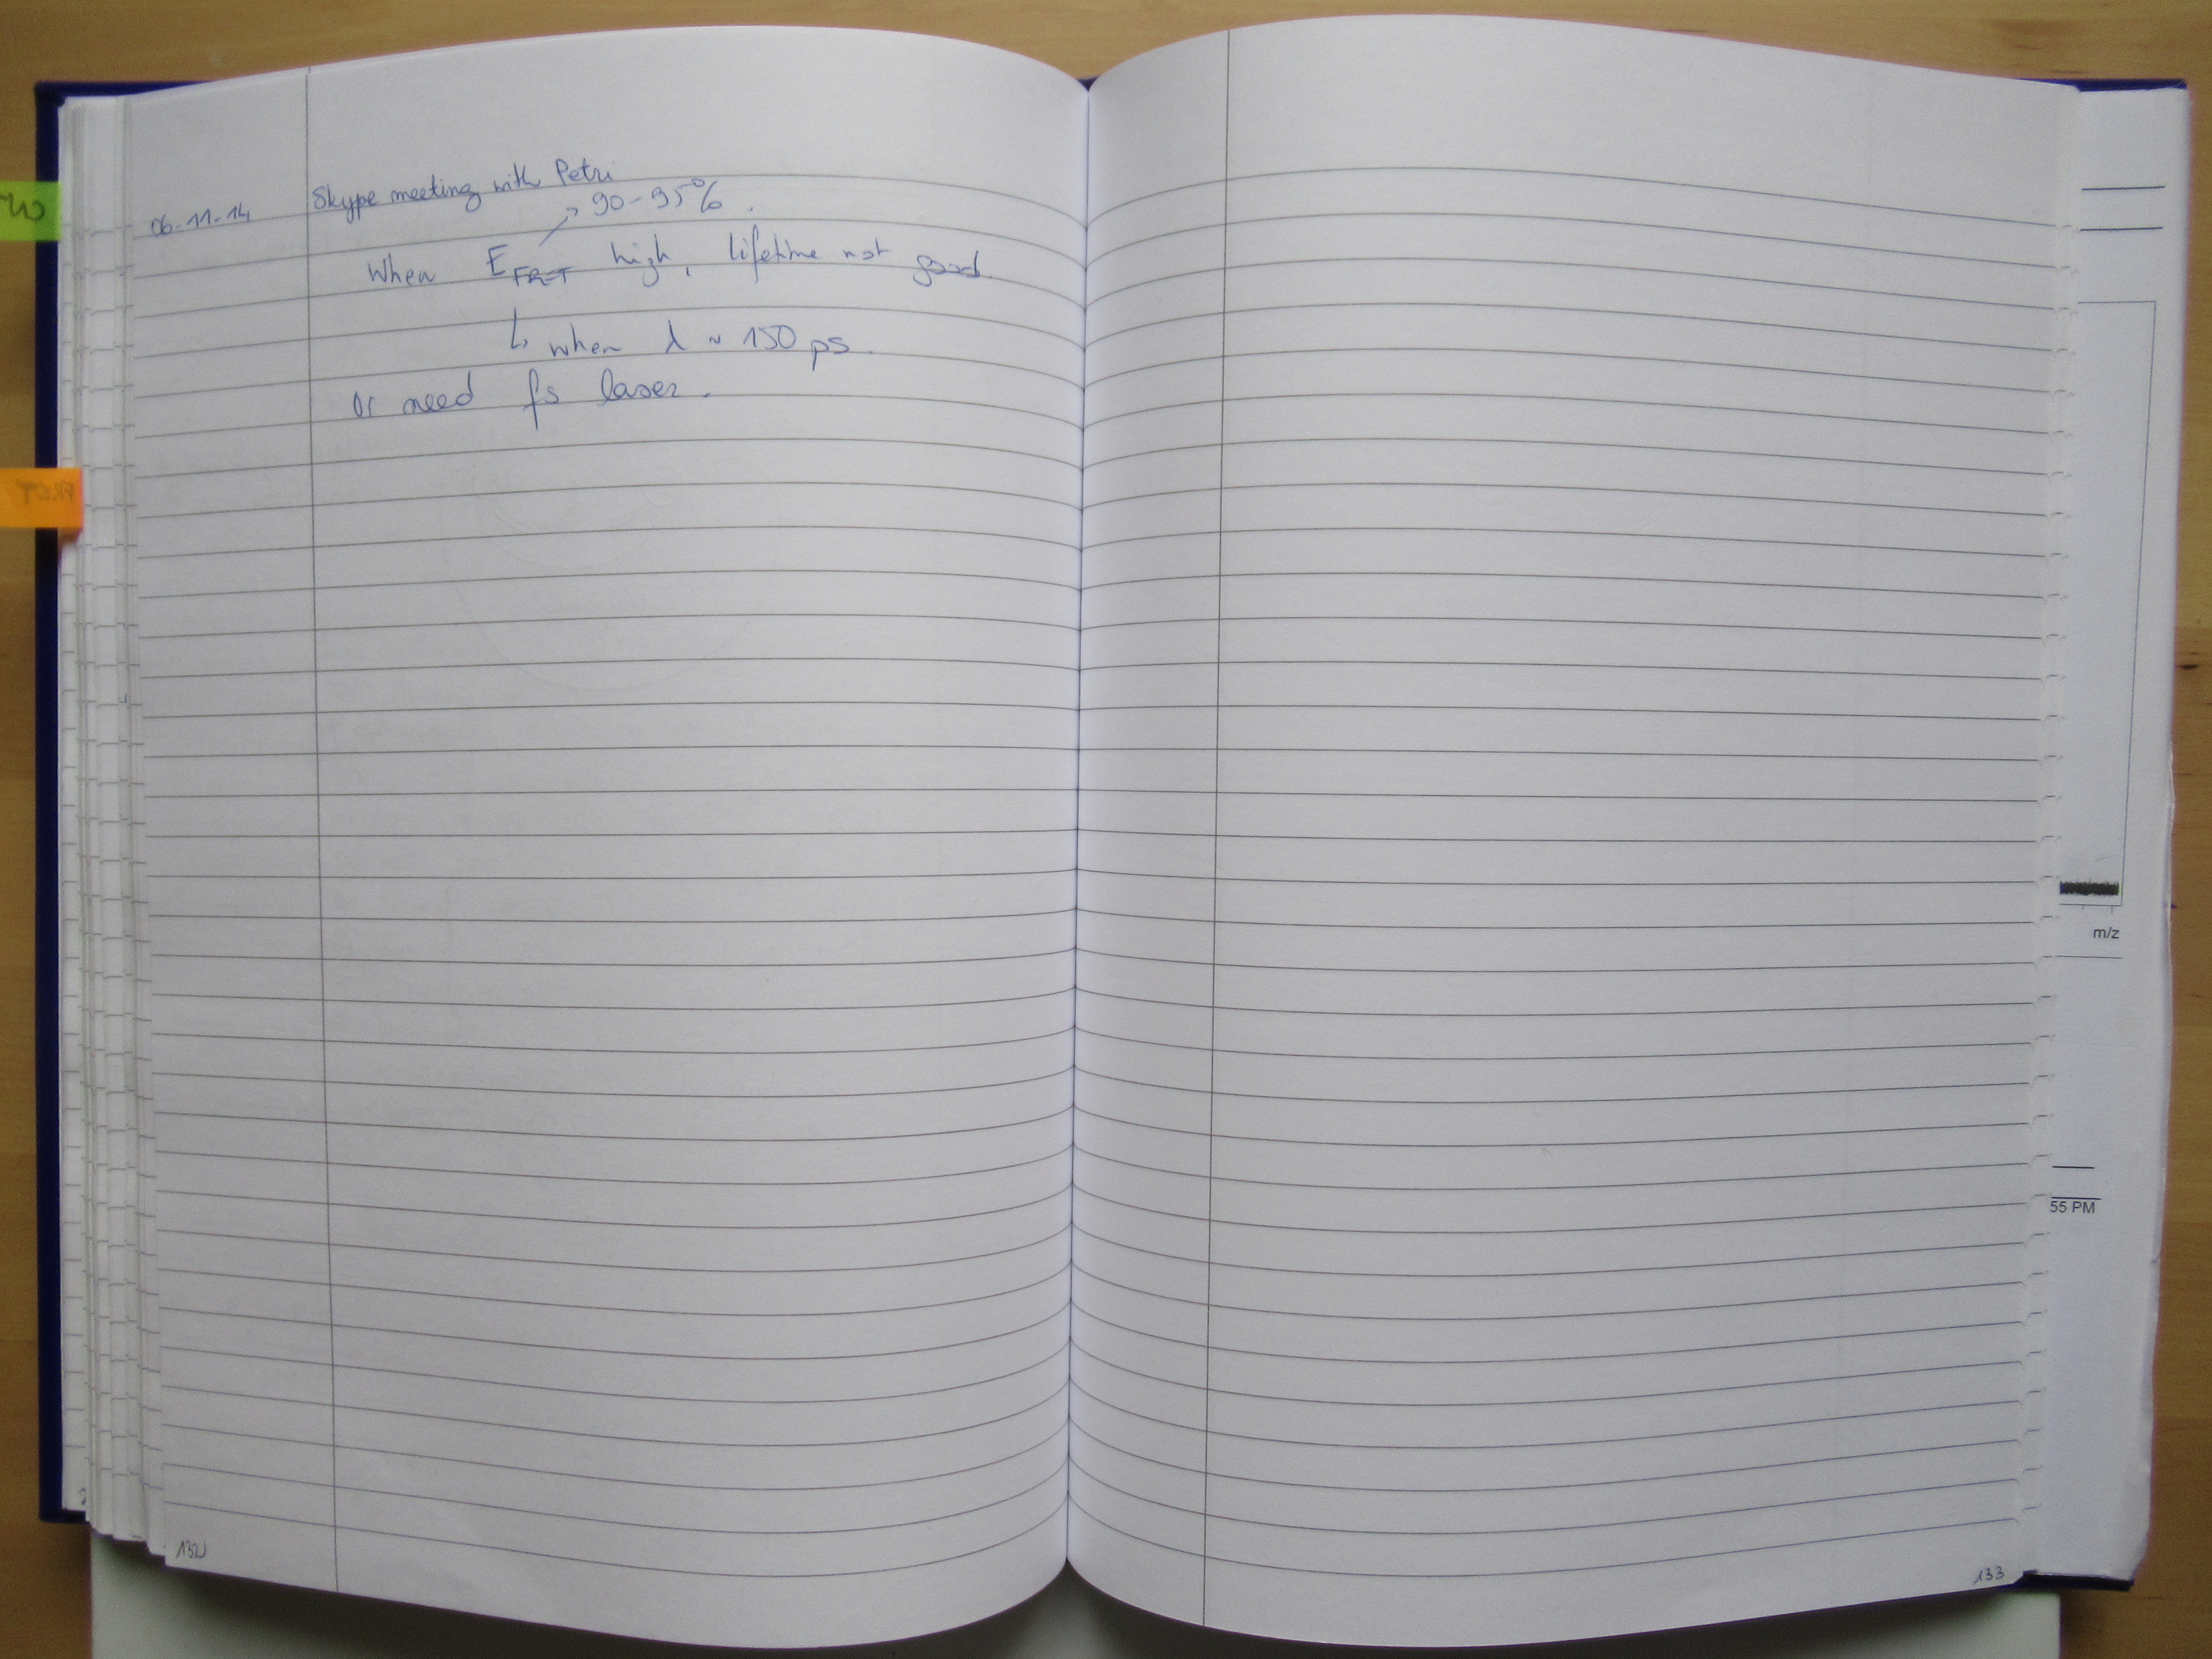 06-11-14 Skype meeting with Petri
90-95%.
When E FRET high, lifetime not good.
↳ when λ ~ 150 ps.
or need fs laser.
PROT
m/z
55 PM
132
133